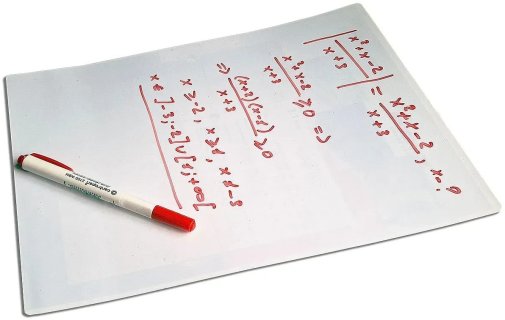 |(x²+x-2)/(x+3)| = (x²+x-2)/(x+3), x=?
(x²+x-2)/(x+3) ≥ 0 =>
=> ((x+2)(x-1))/(x+3) ≥ 0
x ≥ -2, x ≥ 1, x ≠ -3
x ∈ ]-3;-2] ∪ [1;+∞[